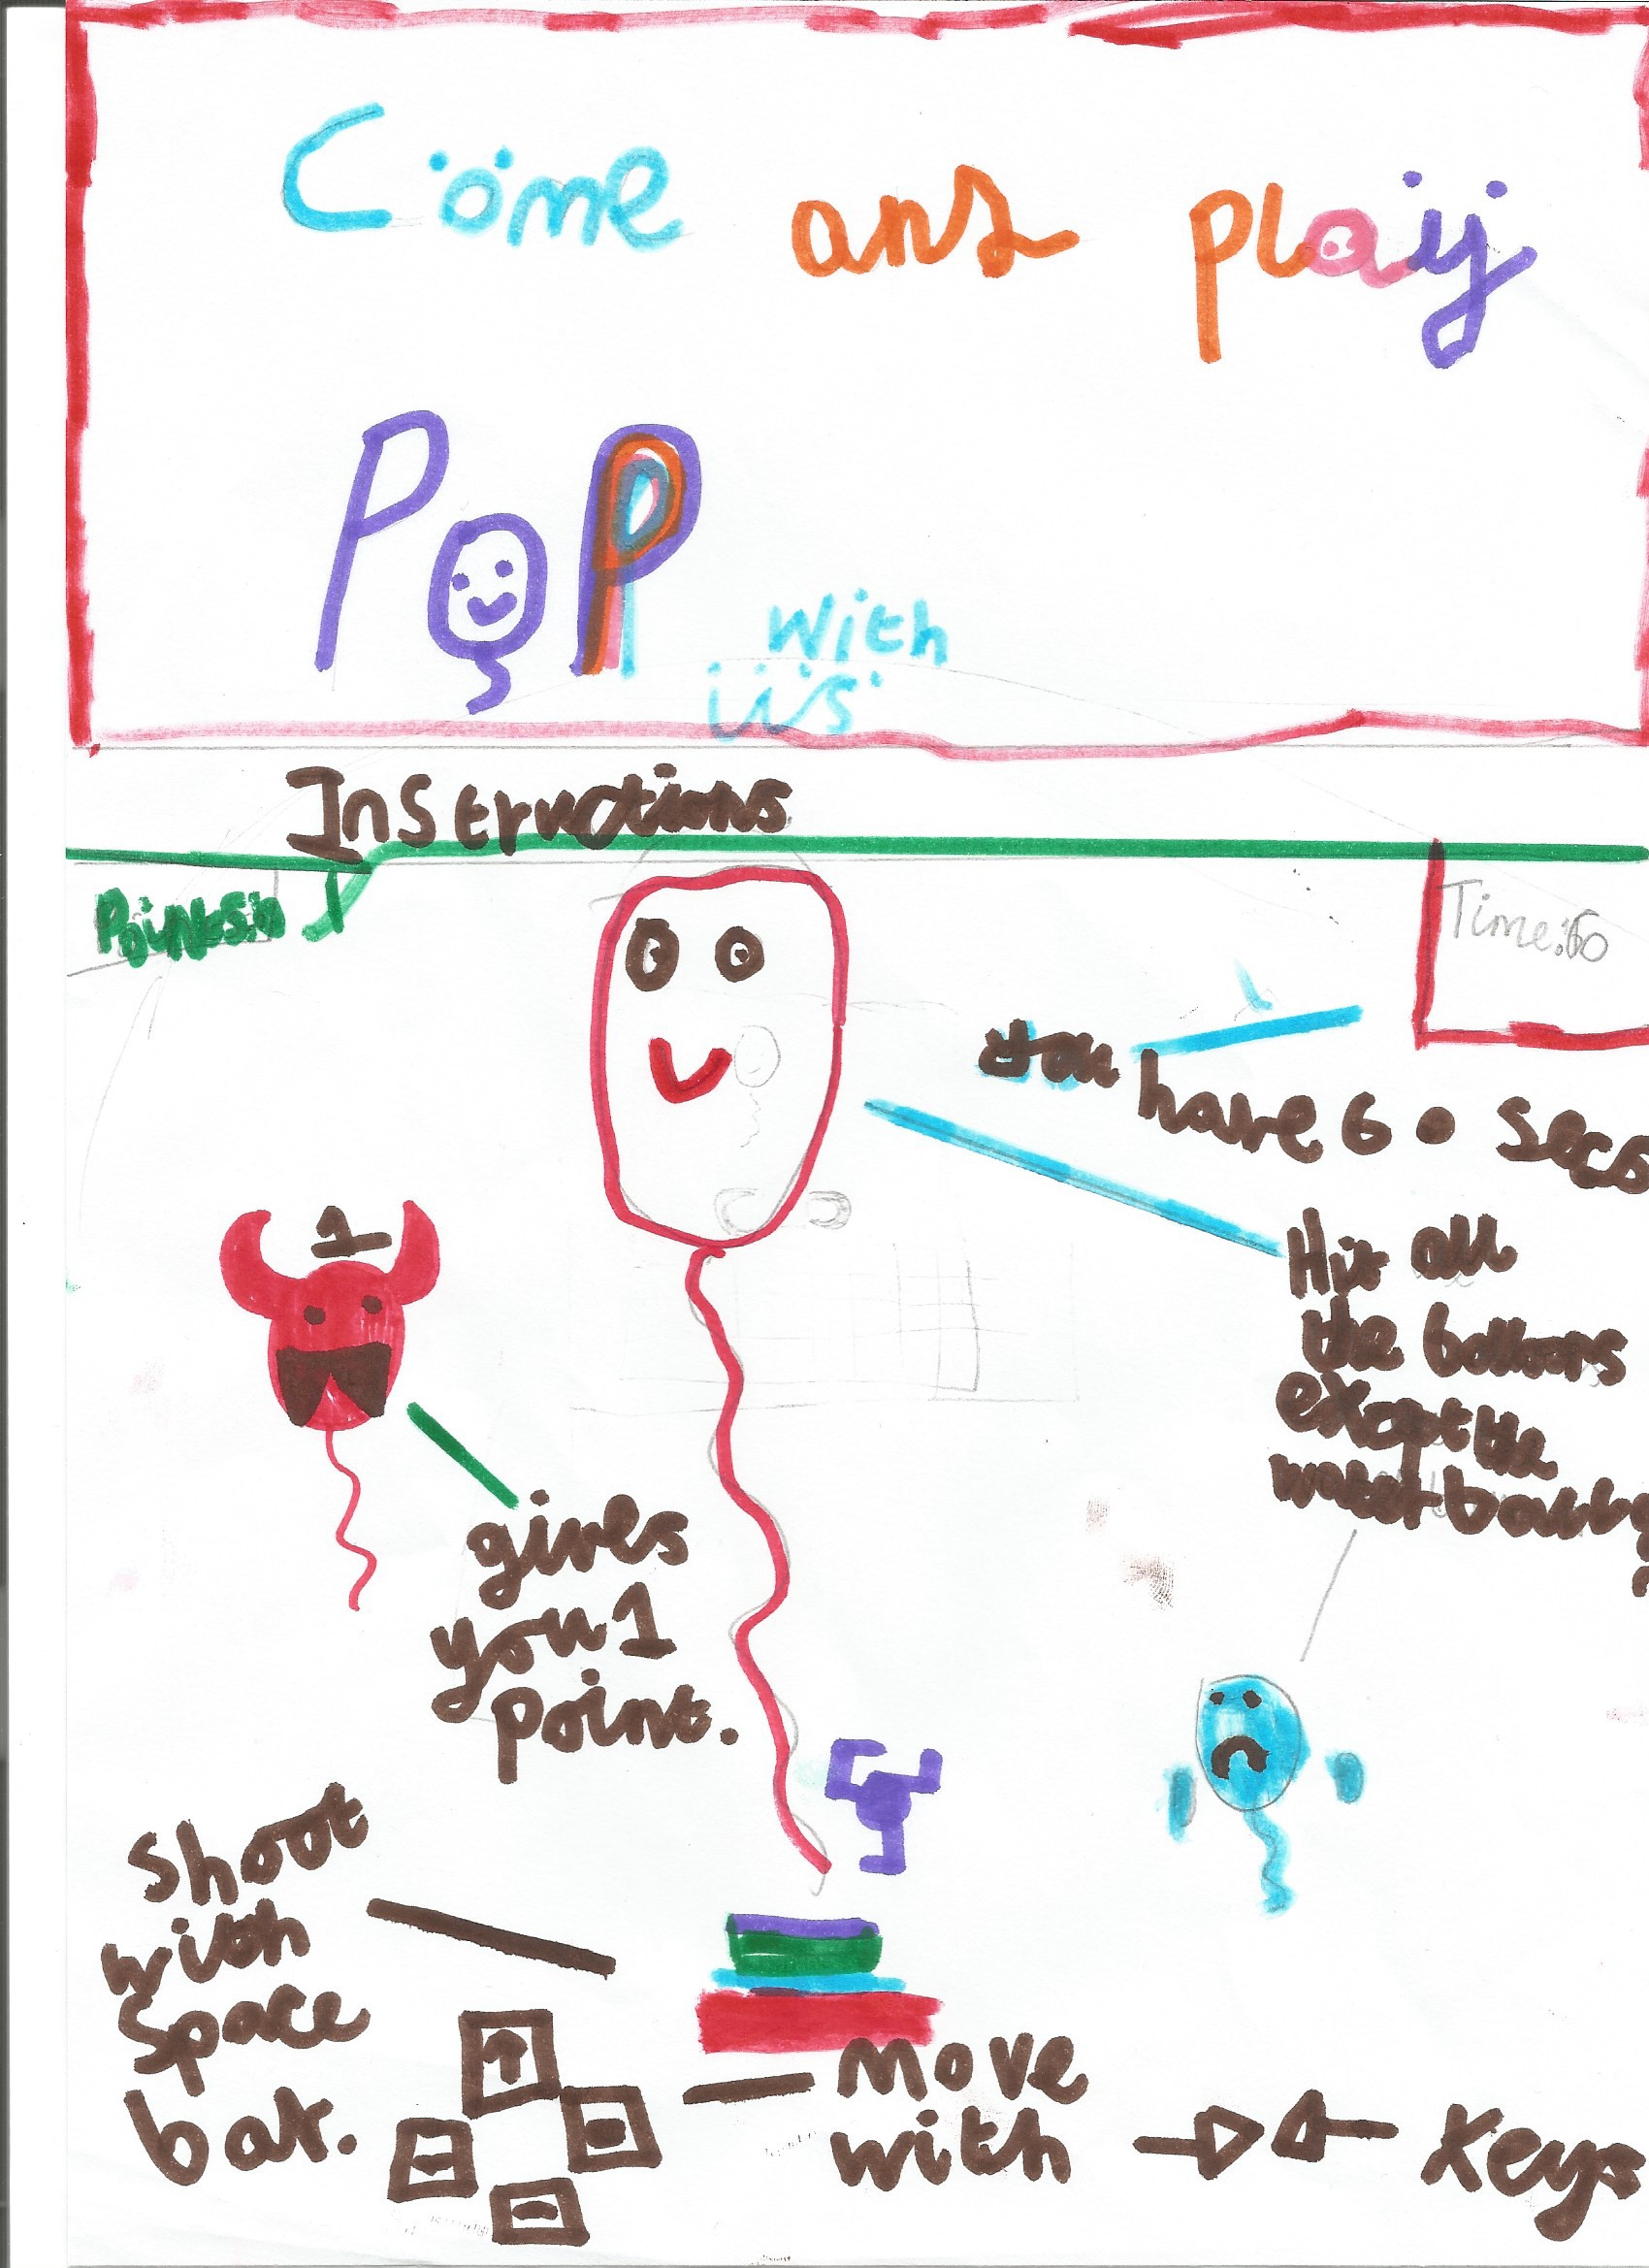 Come and play
POP with
us
Instructions
Points:0
Time:60
You
have 60 secs
1
Hit all
the balloons
except the
water
gives
you 1
point.
Shoot
with
Space
bar.
Move
with → ← Keys